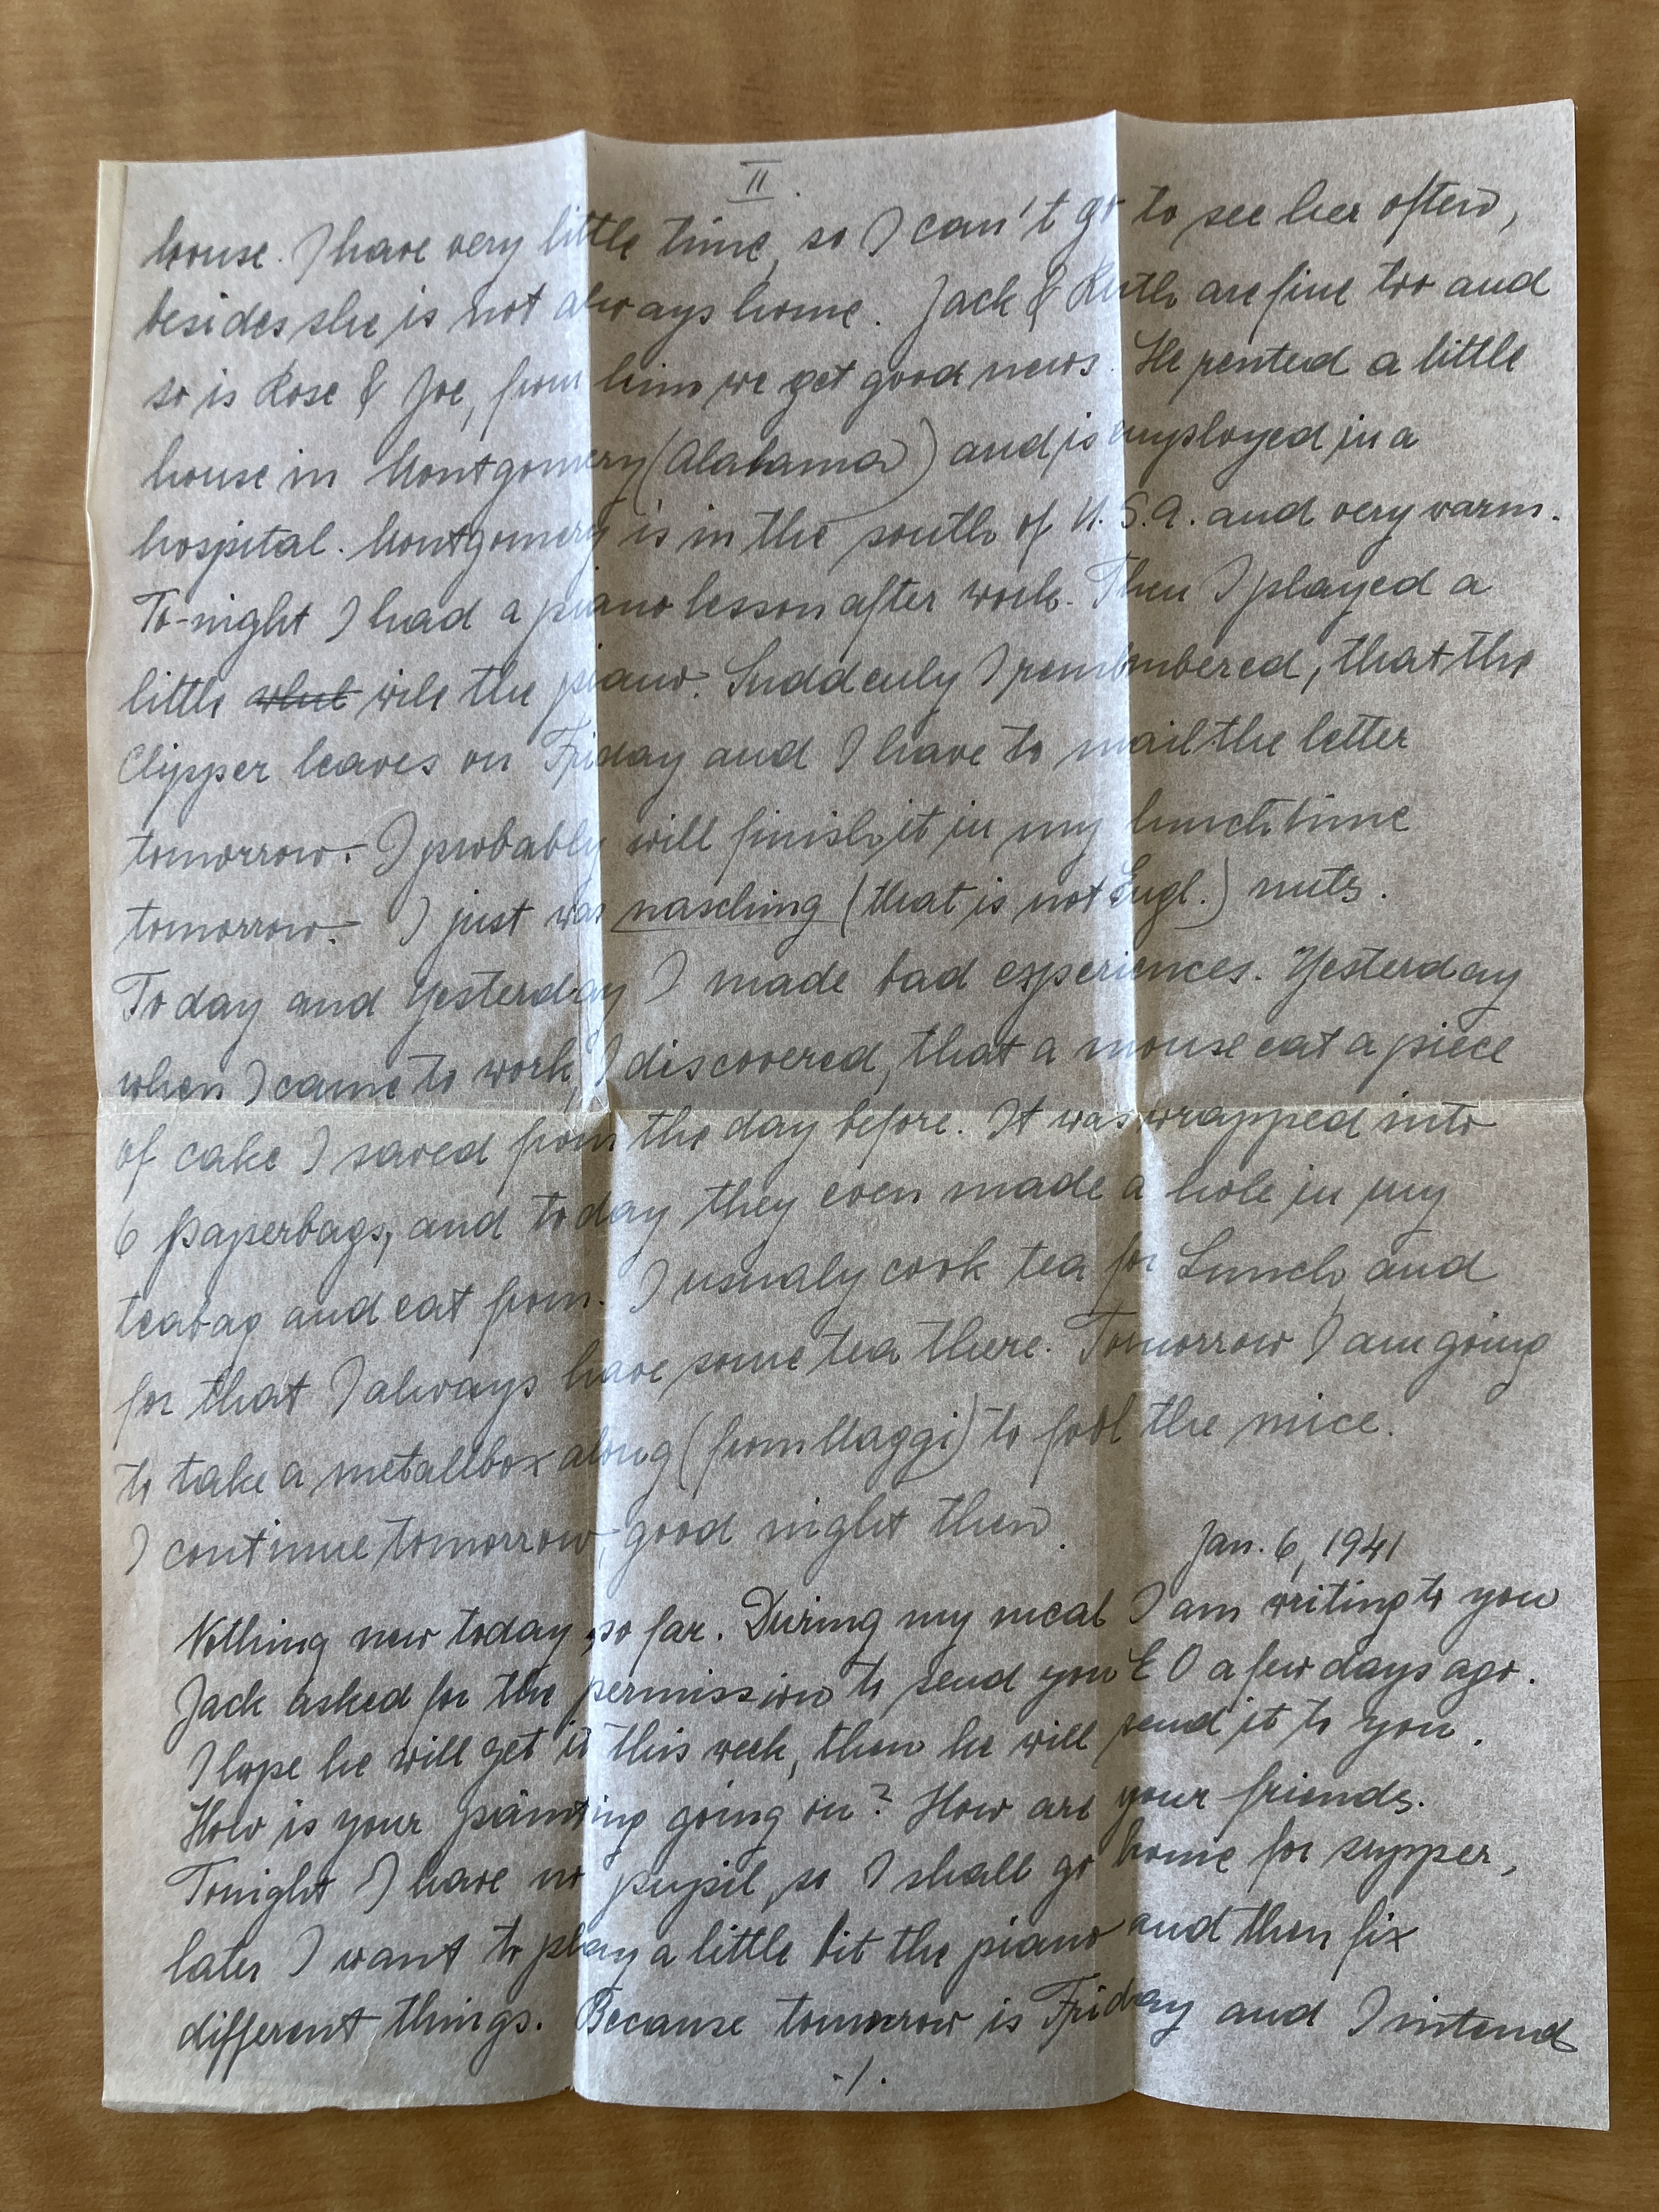 II.
house. I have very little time, so I can't go to see her often,
besides she is not always home. Jack & Ruth are fine too and
so is Rose & Joe, from him we get good news. He rented a little
house in Montgomery (Alabama) and is employed in a
hospital. Montgomery is in the south of U.S.A. and very warm.
To-night I had a piano lesson after work. Then I played a
little the piano. Suddenly I remembered, that the
Clipper leaves on Friday and I have to mail the letter
tomorrow.- I probably will finish it in my lunchtime
tomorrow.- I just was nasching (that is not Engl.) nuts.
Today and Yesterday I made bad experiences. Yesterday
when I came to work, I discovered, that a mouse eat a piece
of cake I saved from the day before. It was wrapped into
6 paperbags, and today they even made a hole in my
teabag and eat from. I usualy cook tea for Lunch and
for that I always have some tea there. Tomorrow I am going
to take a metallbox along (from Maggi) to fool the mice.
I continue tomorrow, good night then.
Jan. 6, 1941
Nothing new today so far. During my meal I am writing to you
Jack asked for the permission to send you £ 0 a few days ago.
I hope he will get it this week, then he will send it to you.
How is your painting going on? How are your friends.
Tonight I have no pupil, so I shall go home for supper,
later I want to play a little bit the piano and then fix
different things. Because tomorrow is Friday and I intend
./.